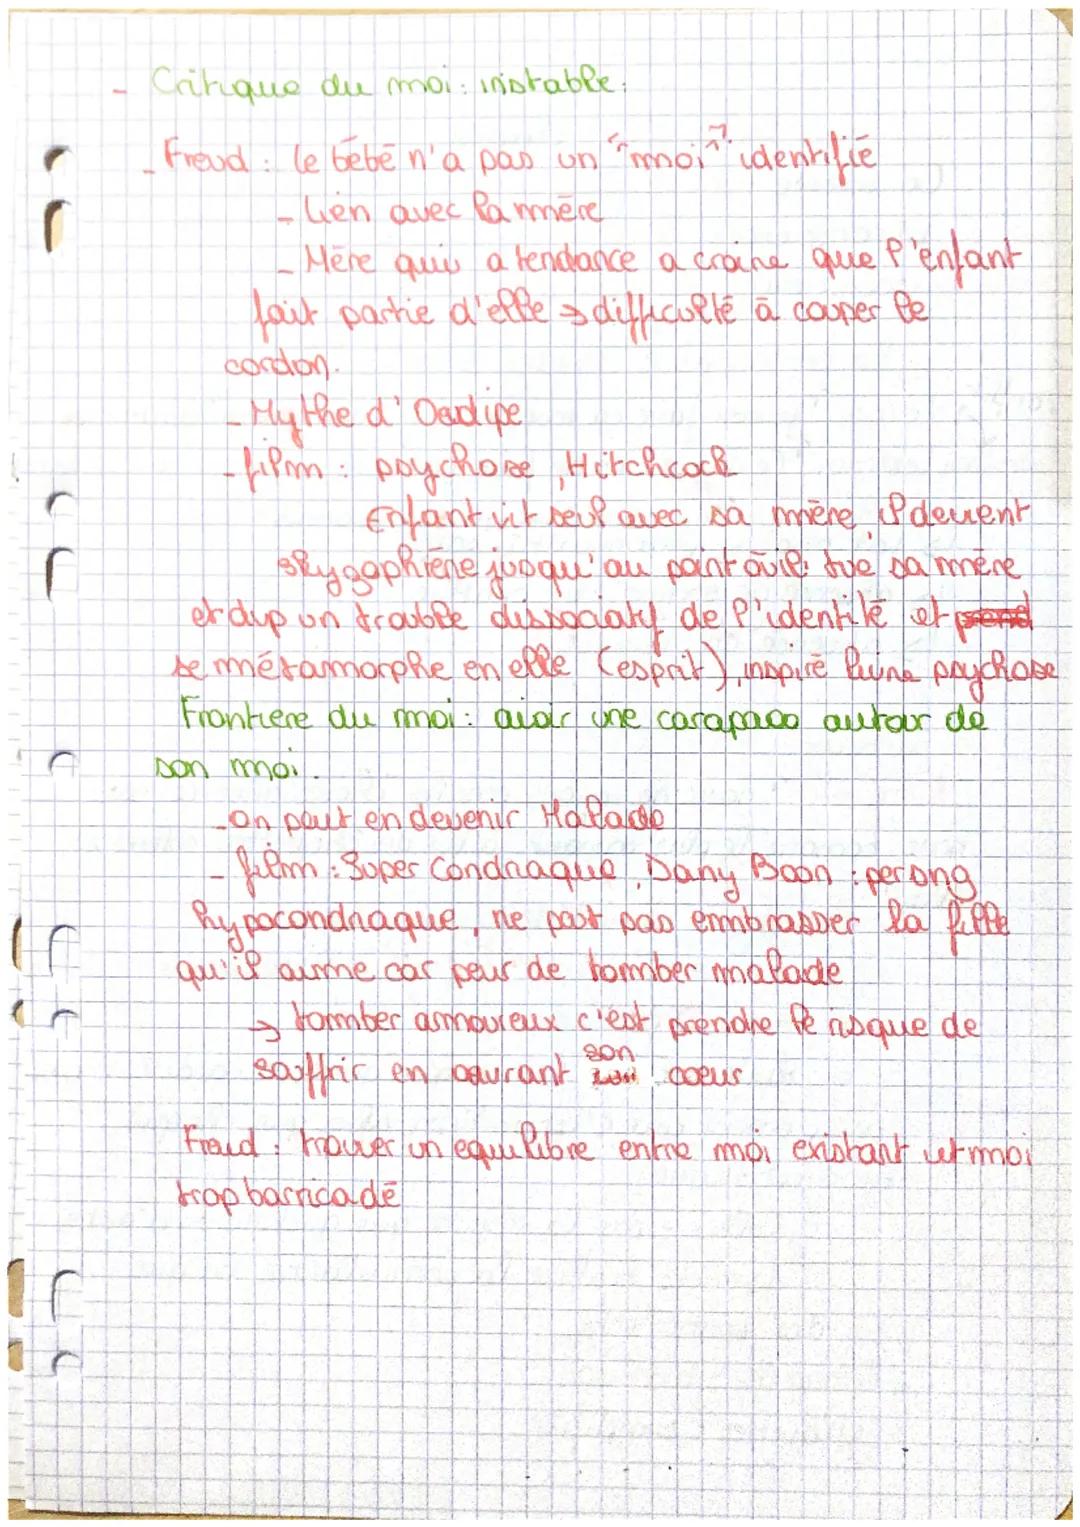 - Critique du moi : instable :
- Freud : le bébé n'a pas un "moi" identifié
- lien avec la mère
- Mère qui a tendance a croire que l'enfant
fait partie d'elle → difficulté à couper le
cordon.
- Mythe d'Oedipe
- film : psychose, Hitchcock
Enfant vit seul avec sa mère, il devient
skyzophrène jusqu'au point où il tue sa mère
et dvp un trouble dissociatif de l'identité et
se métamorphe en elle (esprit), inspiré psychose
Frontière du moi : avoir une carapace autour de
son moi.
- on peut en devenir Malade
- film : Super Condriaque, Dany Boon : persong
hypocondriaque, ne peut pas embrasser la fille
qu'il aime car peur de tomber malade
→ tomber amoureux c'est prendre le risque de
souffrir en ouvrant son coeur
Freud : trouver un equilibre entre moi existant et moi
trop barricadé